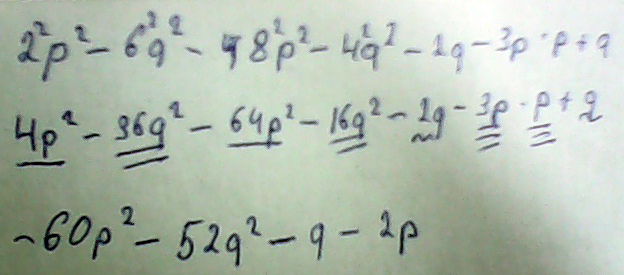 2²p² - 6²q² - 8²p² - 4²q² - 2q - 3p · p + q
4p² - 36q² - 64p² - 16q² - 2q - 3p · p + q
-60p² - 52q² - q - 2p